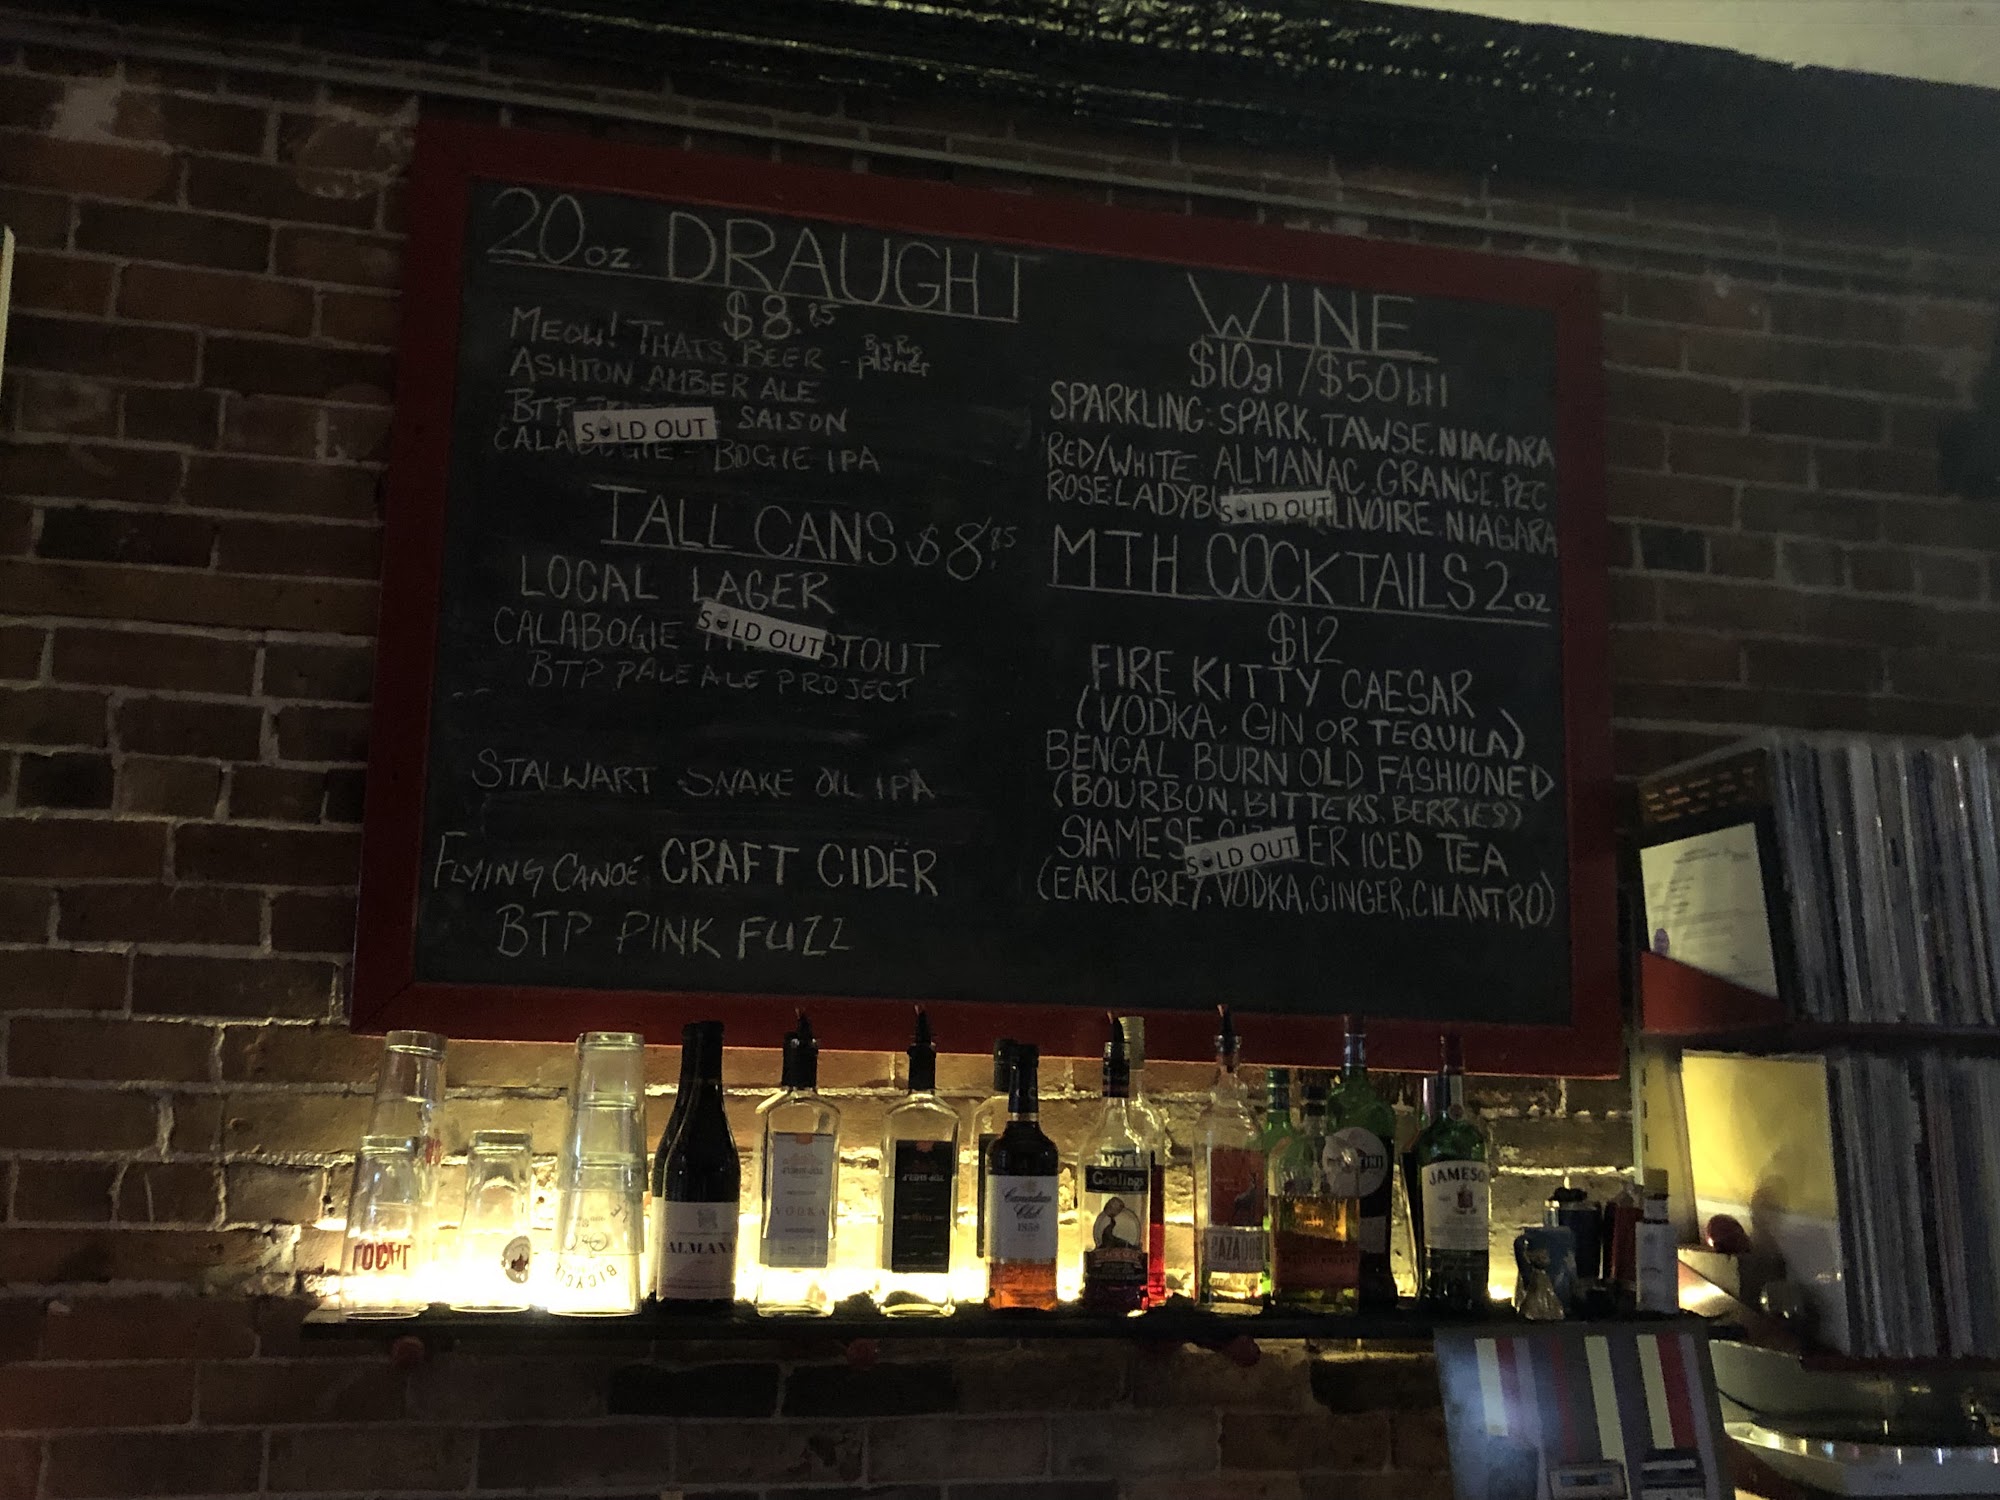 20oz DRAUGHT
$8.25
MEOW! THATS BEER - Big Rig Pilsner
ASHTON AMBER ALE
BTP SOLD OUT SAISON
CALABOGIE - BOGIE IPA
TALL CANS $8.25
LOCAL LAGER
CALABOGIE SOLD OUT STOUT
BTP PALE ALE PROJECT
STALWART SNAKE OIL IPA
FLYING CANOE CRAFT CIDER
BTP PINK FUZZ
WINE
$10gl/$50btl
SPARKLING: SPARK, TAWSE, NIAGARA
RED/WHITE: ALMANAC, GRANGE, PEC
ROSE: LADYBUG SOLD OUT MALIVOIRE, NIAGARA
MTH COCKTAILS 2oz
$12
FIRE KITTY CAESAR
(VODKA, GIN OR TEQUILA)
BENGAL BURN OLD FASHIONED
(BOURBON, BITTERS, BERRIES)
SIAMESE SOLD OUT ER ICED TEA
(EARL GREY, VODKA, GINGER, CILANTRO)
LOCAL
BICYCLE
ALMANAC
TOP SHELF
VODKA
TOP SHELF
Canadian Club
1858
Goslings
CAZADORES
MARTINI
JAMESON